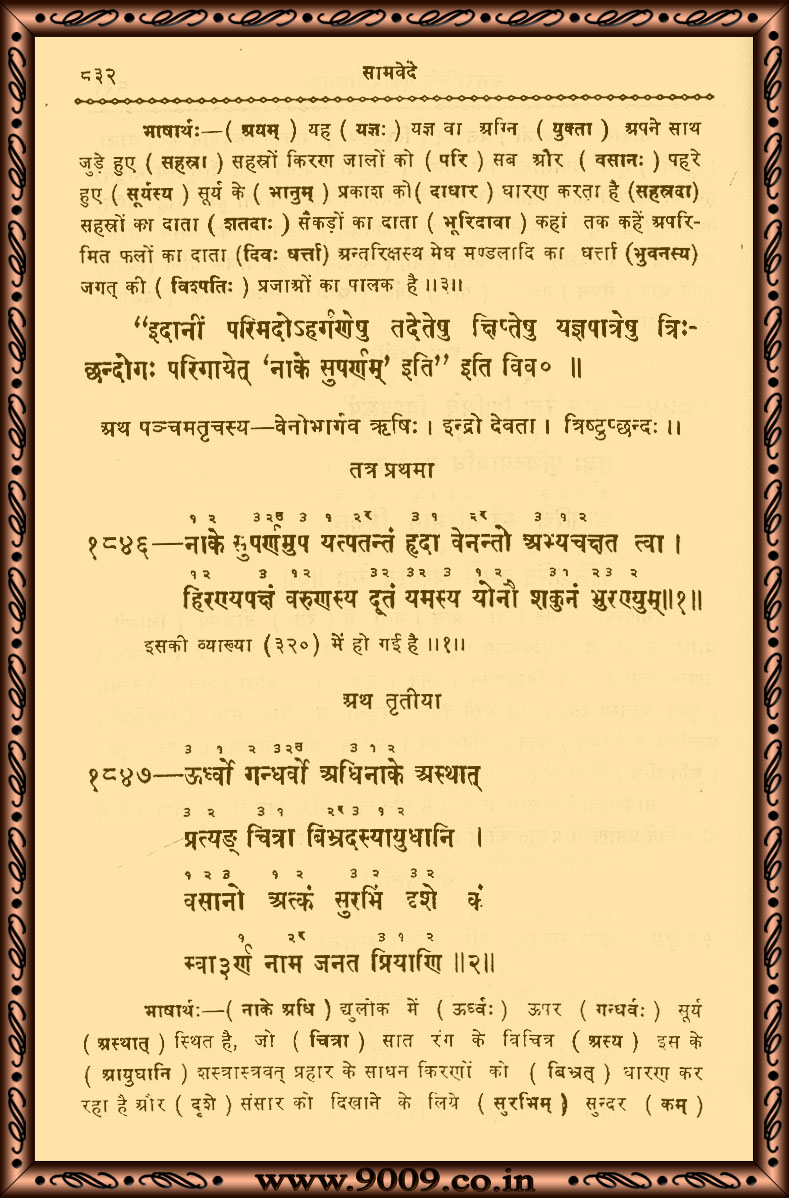 ८३२ सामवेदे
भाषार्थः—( अयम् ) यह ( यज्ञः ) यज्ञ वा अग्नि ( युक्ता ) अपने साथ
जुड़े हुए ( सहस्रा ) सहस्रों किरण जालों को ( परि ) सब और ( वसानः ) पहरे
हुए ( सूर्यस्य ) सूर्य के ( भानुम् ) प्रकाश को( दाधार ) धारण करता है (सहस्रदा)
सहस्रों का दाता ( शतदाः ) सैंकड़ों का दाता ( भूरिदावा ) कहां तक कहें अपरि-
मित फलों का दाता (दिवः धर्त्ता) अन्तरिक्षस्थ मेघ मण्डलादि का धर्त्ता (भुवनस्य)
जगत् की ( विश्पतिः ) प्रजाओं का पालक है ॥३॥
“इदानीं परिमदोऽहर्गणेषु तदेतेषु क्षिप्तेषु यज्ञपात्रेषु त्रिः-
छन्दोगः परिगायेत् ‘नाके सुपर्णम्’ इति” इति विव० ॥
अथ पञ्चमतृचस्य—वेनोभार्गव ऋषिः । इन्द्रो देवता । त्रिष्टुप्छन्दः ॥
तत्र प्रथमा
१ २ ३ २उ ३ १ २र ३ १ २र ३ १ २
१८४६—नाके सुपर्णमुप यत्पतन्तं हृदा वेनन्तो अभ्यचक्षत त्वा ।
१ २ ३ १ २ ३ २ ३ २ ३ १ २ ३ १ २ ३ २
हिरण्यपक्षं वरुणस्य दूतं यमस्य योनौ शकुनं भुरण्युम्॥१॥
इसकी व्याख्या (३२०) में हो गई है ॥१॥
अथ तृतीया
३ १ २ ३ २उ ३ १ २
१८४७—ऊर्ध्वो गन्धर्वो अधिनाके अस्थात्
३ २ ३ १ २र ३ १ २
प्रत्यङ् चित्रा बिभ्रदस्यायुधानि ।
१ २ ३ १ २ ३ २ ३ २
वसानो अत्कं सुरभिं दृशे कं
१ २र ३ १ २
स्वा३र्ण नाम जनत प्रियाणि ॥२॥
भाषार्थः—( नाके अधि ) द्युलोक में ( ऊर्ध्वः ) ऊपर ( गन्धर्वः ) सूर्य
( अस्थात् ) स्थित है, जो ( चित्रा ) सात रंग के विचित्र ( अस्य ) इस के
( आयुधानि ) शस्त्रास्त्रवत् प्रहार के साधन किरणों को ( बिभ्रत् ) धारण कर
रहा है और ( दृशे ) संसार को दिखाने के लिये ( सुरभिम् ) सुन्दर ( कम् )
www.9009.co.in